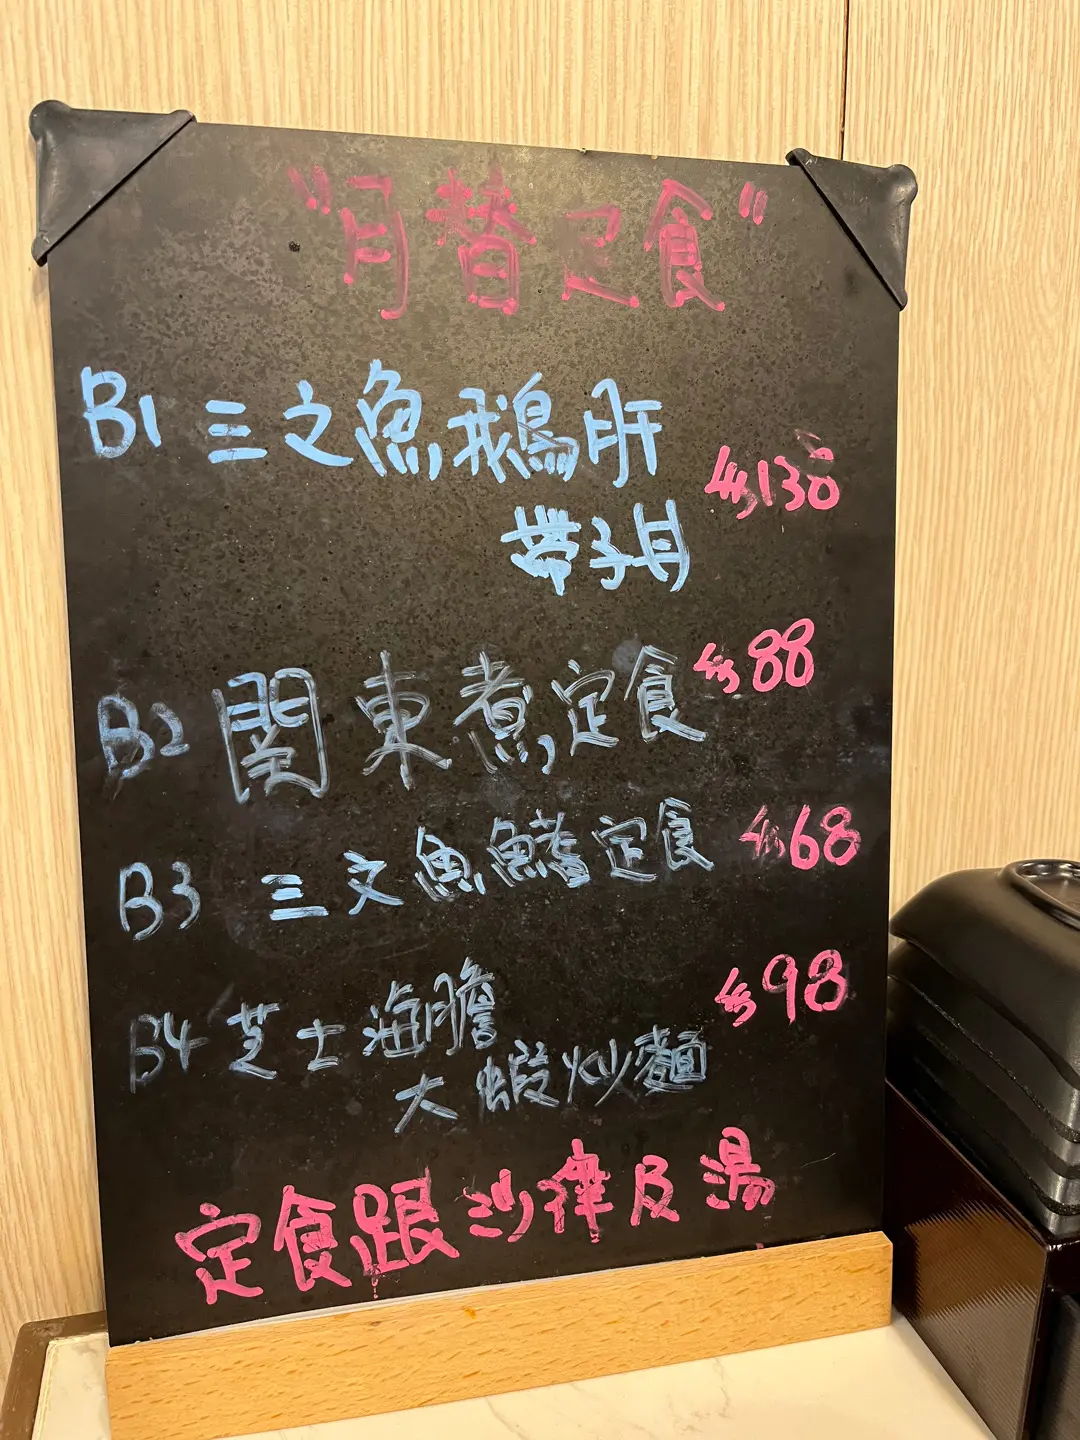 "月替定食"
B1 三文魚鵝肝
帶子丼
$138
B2 関東煮定食 $88
B3 三文魚鰭定食 $68
B4 芝士海膽 $98
大蝦炒麵
定食跟沙律及湯